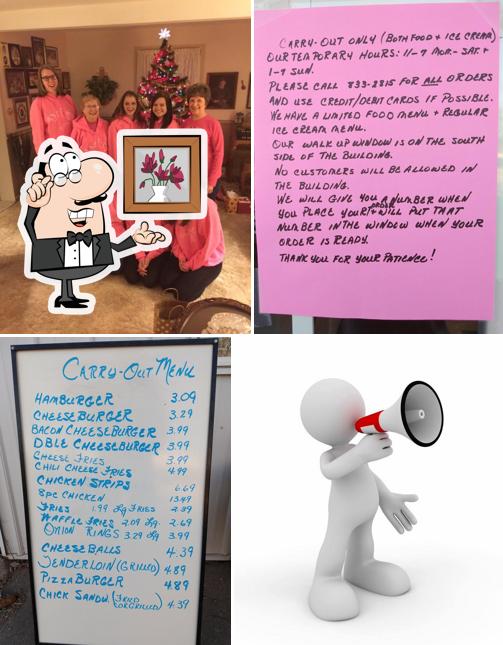 CARRY-OUT ONLY (BOTH FOOD + ICE CREAM)
OUR TEMPORARY HOURS: 11-7 MON.- SAT. +
1-9 SUN.
PLEASE CALL 833-2815 FOR ALL ORDERS
AND USE CREDIT/DEBIT CARDS IF POSSIBLE.
WE HAVE A LIMITED FOOD MENU + REGULAR
ICE CREAM MENU.
OUR WALK UP WINDOW IS ON THE SOUTH
SIDE OF THE BUILDING.
NO CUSTOMERS WILL BE ALLOWED IN
THE BUILDING.
WE WILL GIVE YOU A NUMBER WHEN
YOU PLACE YOUR ORDER + WILL PUT THAT
NUMBER IN THE WINDOW WHEN YOUR
ORDER IS READY.
THANK YOU FOR YOUR PATIENCE!
CARRY-OUT MENU
HAMBURGER 3.09
CHEESEBURGER 3.29
BACON CHEESEBURGER 3.99
DBLE CHEESEBURGER 3.99
CHEESE FRIES 3.99
CHILI CHEESE FRIES 4.99
CHICKEN STRIPS 6.69
8PC CHICKEN 13.49
FRIES 1.99 Lg FRIES
WAFFLE FRIES 2.09 Lg. 2.69
ONION RINGS 3.29 Lg 3.99
CHEESEBALLS 4.39
TENDERLOIN (GRILLED) 4.89
PIZZA BURGER 4.89
CHICK SANDW. (FRIED OR GRILLED) 4.39